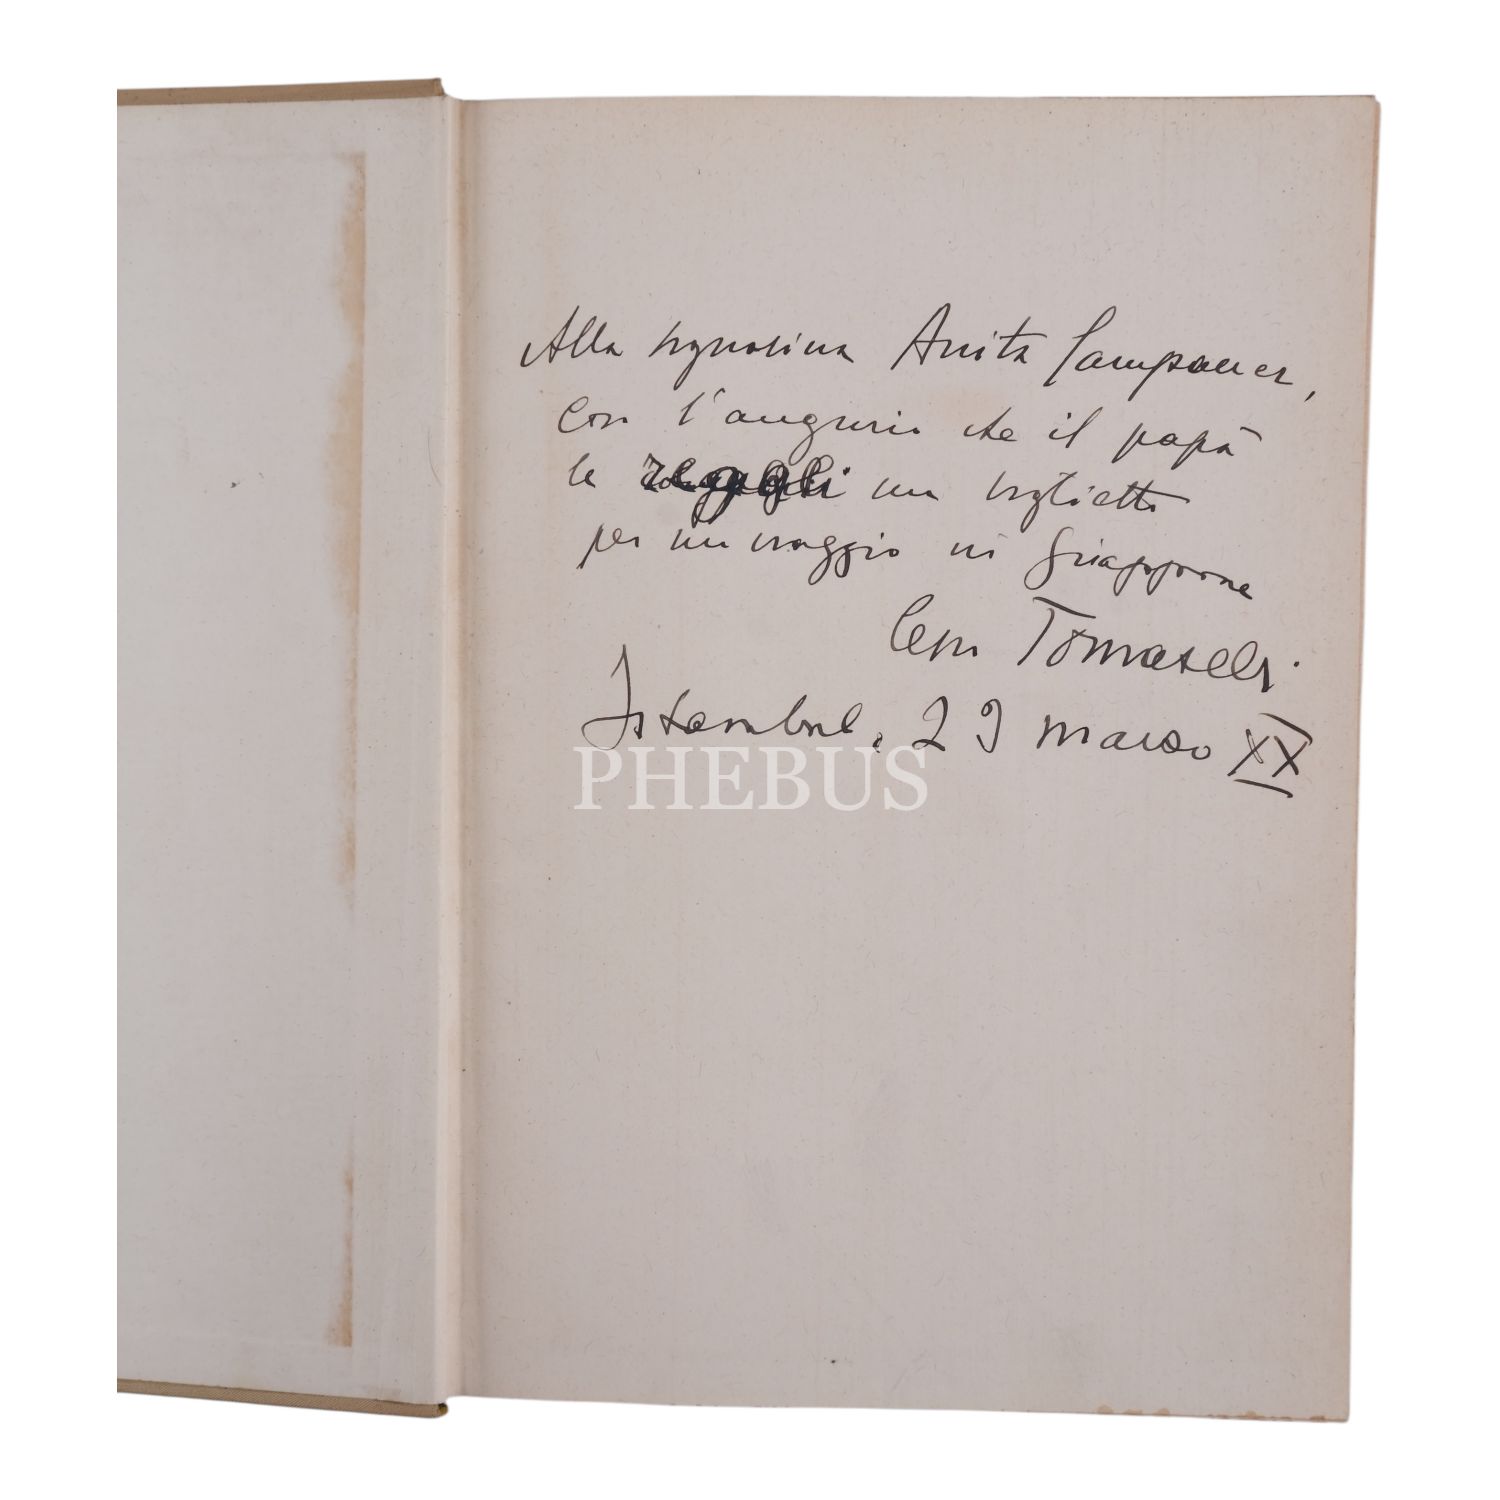 Alla signorina Anita Campaner,
con l'augurio che il papà
le regali un biglietto
per un viaggio in Giappone
Cesco Tomaselli.
Istanbul, 29 marzo XX
PHEBUS